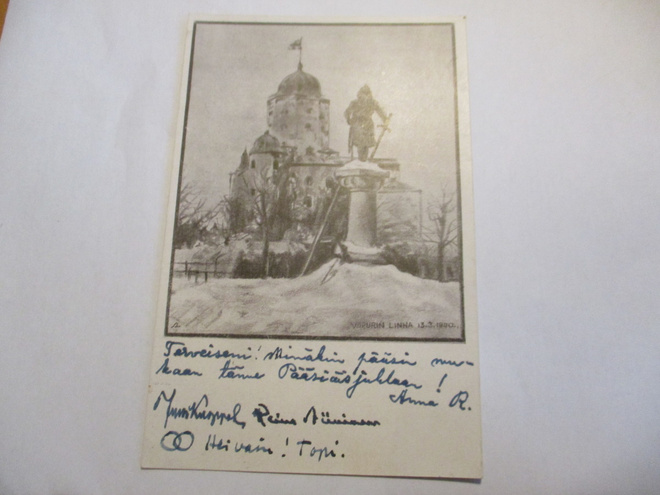 VIIPURIN LINNA 13.3.1940.
Terveiseni! Minäkin pääsin mu-
kaan tänne Pääsiäisjuhlaan!
Anna R.
Reino
Hei vain! Topi.